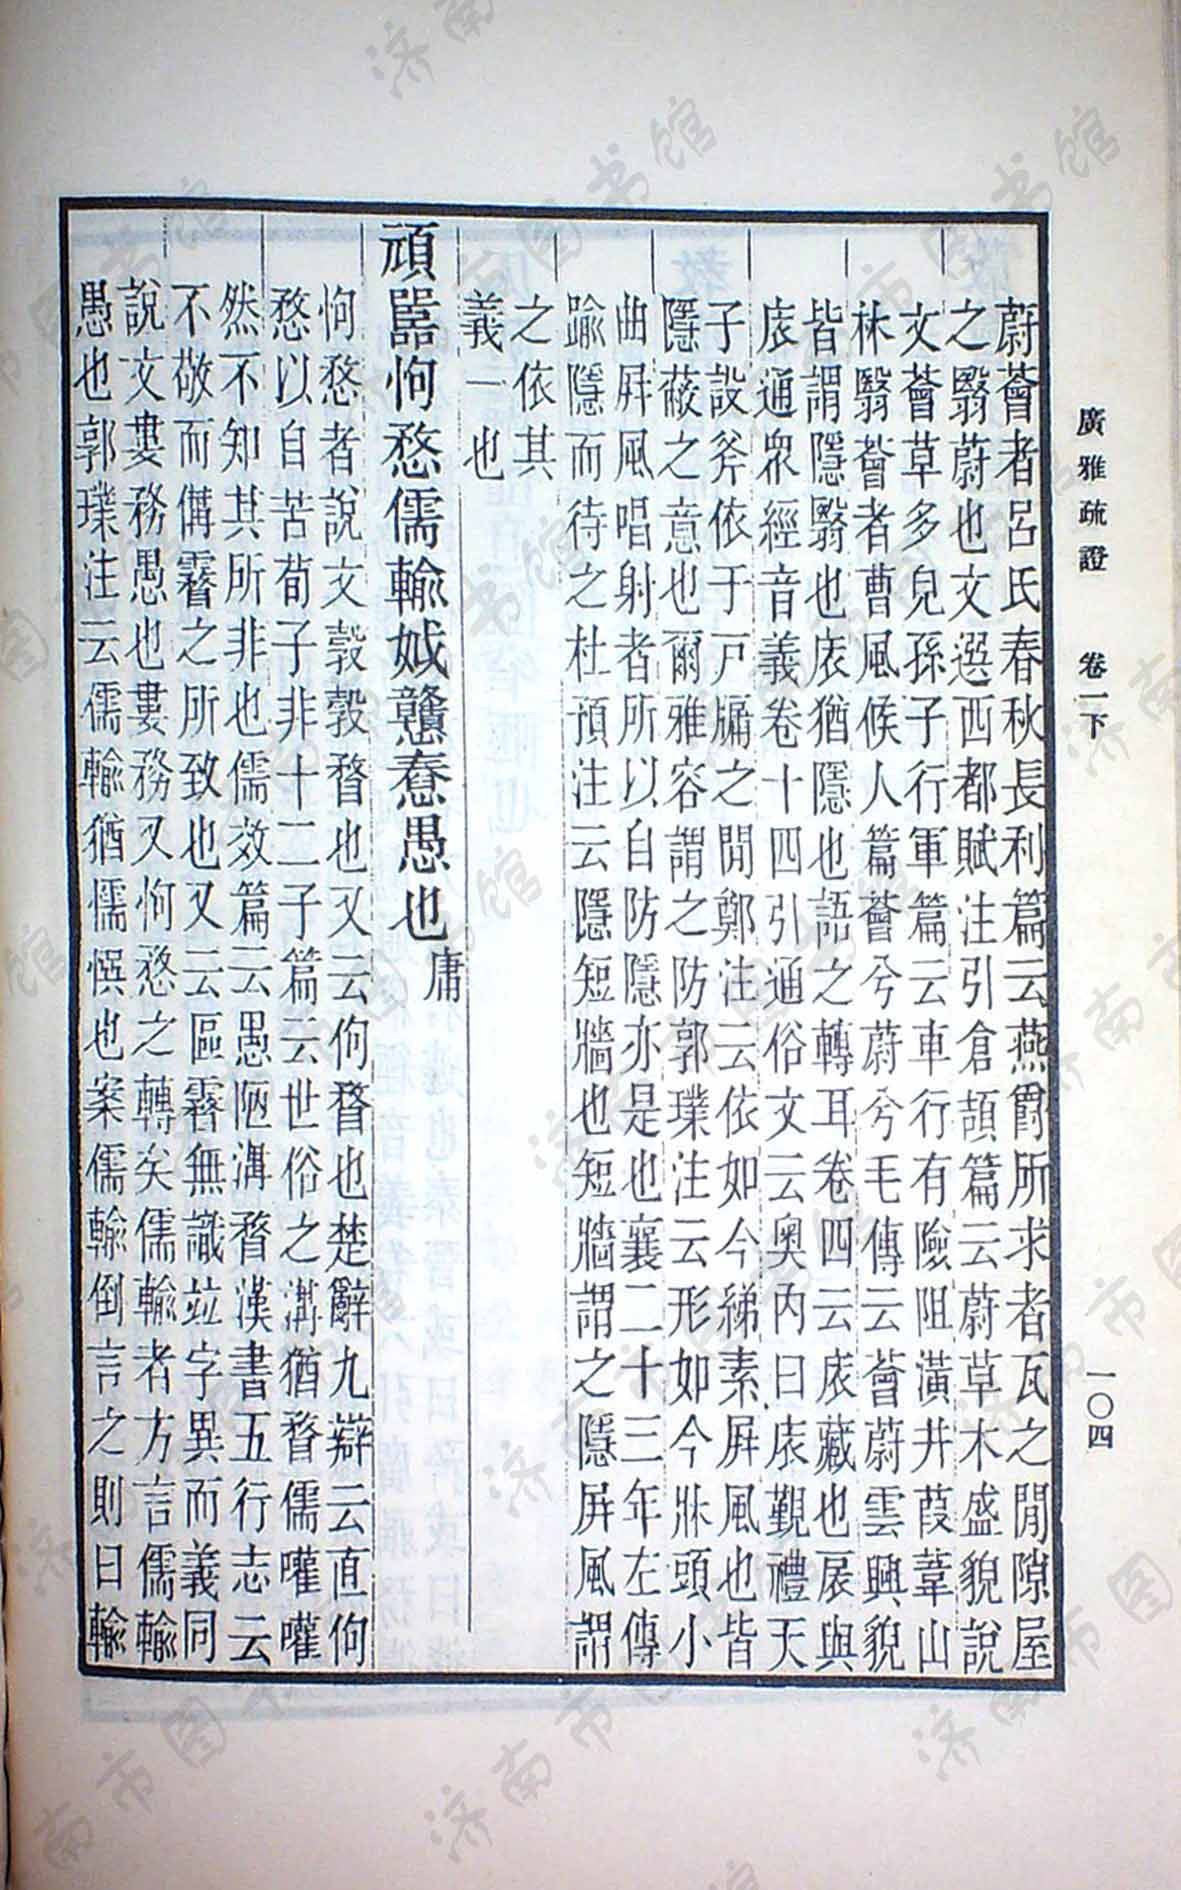 廣雅疏證　卷一下
一〇四
蔚薈者呂氏春秋長利篇云燕爵所求者瓦之閒隙屋
之翳蔚也文選西都賦注引倉頡篇云蔚草木盛貌說
文薈草多皃孫子行軍篇云車行有險阻潢井葭葦山
林翳薈者曹風候人篇薈兮蔚兮毛傳云薈蔚雲興貌
皆謂隱翳也庡猶隱也語之轉耳卷四云庡藏也扆與
庡通眾經音義卷十四引通俗文云奥內曰庡覲禮天
子設斧依于戸牖之閒鄭注云依如今綈素屛風也皆
隱蔽之意也爾雅容謂之防郭璞注云形如今牀頭小
曲屛風唱射者所以自防隱亦是也襄二十三年左傳
踰隱而待之杜預注云隱短牆也短牆謂之隱屛風謂
之依其
義一也
頑嚚怐愗儒輸娍戇惷愚也庸
怐愗者說文瞉瞉瞀也又云佝瞀也楚辭九辯云直佝
愗以自苦荀子非十二子篇云世俗之溝猶瞀儒嚾嚾
然不知其所非也儒效篇云愚陋溝瞀漢書五行志云
不敬而傋霿之所致也又云區霿無識竝字異而義同
說文婁務愚也婁務又怐愗之轉矣儒輸者方言儒輸
愚也郭璞注云儒輸猶懦懦也案儒輸倒言之則曰輸
濟南市图书馆